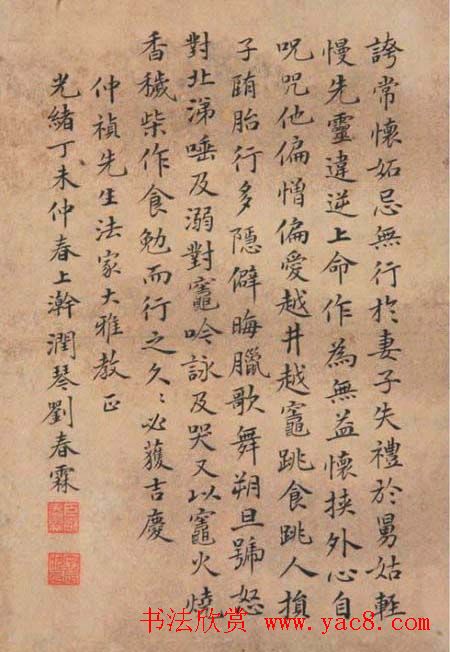 誇常懷妬忌無行於妻子失禮於舅姑輕
慢先靈違逆上命作為無益懷挾外心自
呪呪他偏憎偏愛越井越竈跳食跳人損
子墮胎行多隱僻晦臘歌舞朔旦號怒
對北涕唾及溺對竈吟詠及哭又以竈火燒
香穢柴作食勉而行之久〻必獲吉慶
仲禎先生法家大雅教正
光緒丁未仲春上澣潤琴劉春霖
书法欣赏 www.yac8.com